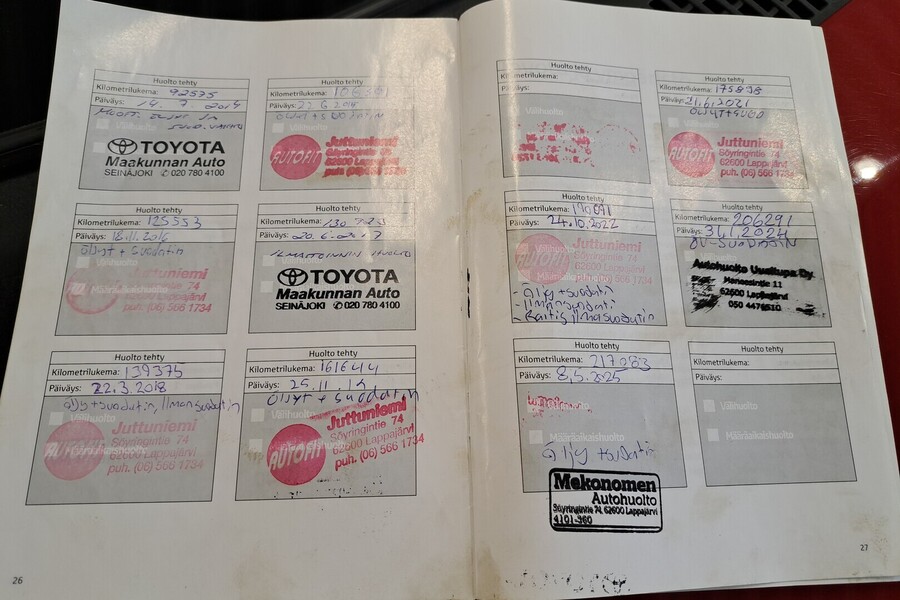 Huolto tehty
Kilometrilukema: 92575
Päiväys: 14. 7 2014
TOYOTA
Maakunnan Auto
SEINÄJOKI ✆ 020 780 4100
Huolto tehty
Kilometrilukema:
Päiväys:
ÖLJYT + SUODATIN
AUTOFIT
Juttuniemi
Söyringintie 74
62600 Lappajärvi
puh. (06) 566 1734
Huolto tehty
Kilometrilukema: 125553
Päiväys: 18.11.2016
öljyt + suodatin
Välihuolto
Määräaikaishuolto
Juttuniemi
Söyringintie 74
62600 Lappajärvi
puh. (06) 566 1734
Huolto tehty
Kilometrilukema:
Päiväys: 20.6-2017
ILMASTOINNIN HUOLTO
TOYOTA
Maakunnan Auto
SEINÄJOKI ✆ 020 780 4100
Huolto tehty
Kilometrilukema: 139375
Päiväys: 22.3.2018
öljy + suodatin, ilmansuodatin
Välihuolto
Määräaikaishuolto
AUTOFIT
Juttuniemi
Söyringintie 74
62600 Lappajärvi
puh. (06) 566 1734
Huolto tehty
Kilometrilukema: 161644
Päiväys: 25.11.19
öljyt + suodatin
AUTOFIT
Juttuniemi
Söyringintie 74
62600 Lappajärvi
puh. (06) 566 1734
26
Huolto tehty
Kilometrilukema:
Päiväys:
Välihuolto
Huolto tehty
Kilometrilukema: 175898
Päiväys: 21.6.2021
AUTOFIT
Juttuniemi
Söyringintie 74
62600 Lappajärvi
puh. (06) 566 1734
Huolto tehty
Kilometrilukema: 190691
Päiväys: 24.10.2022
Juttuniemi
Söyringintie 74
62600 Lappajärvi
puh. (06) 566 1734
- öljy + suodatin
- ilmansuodatin
- Raitis ilmasuodatin
Huolto tehty
Kilometrilukema: 206291
Päiväys: 3.1.2024
Autohuolto Uusitupa Oy
62600 Lappajärvi
050 4476510
Huolto tehty
Kilometrilukema: 217083
Päiväys: 8.5.2025
Välihuolto
Määräaikaishuolto
öljy + suodatin
Mekonomen
Autohuolto
Söyringintie 74, 62600 Lappajärvi
4101-960
Huolto tehty
Kilometrilukema:
Päiväys:
Välihuolto
Määräaikaishuolto
27